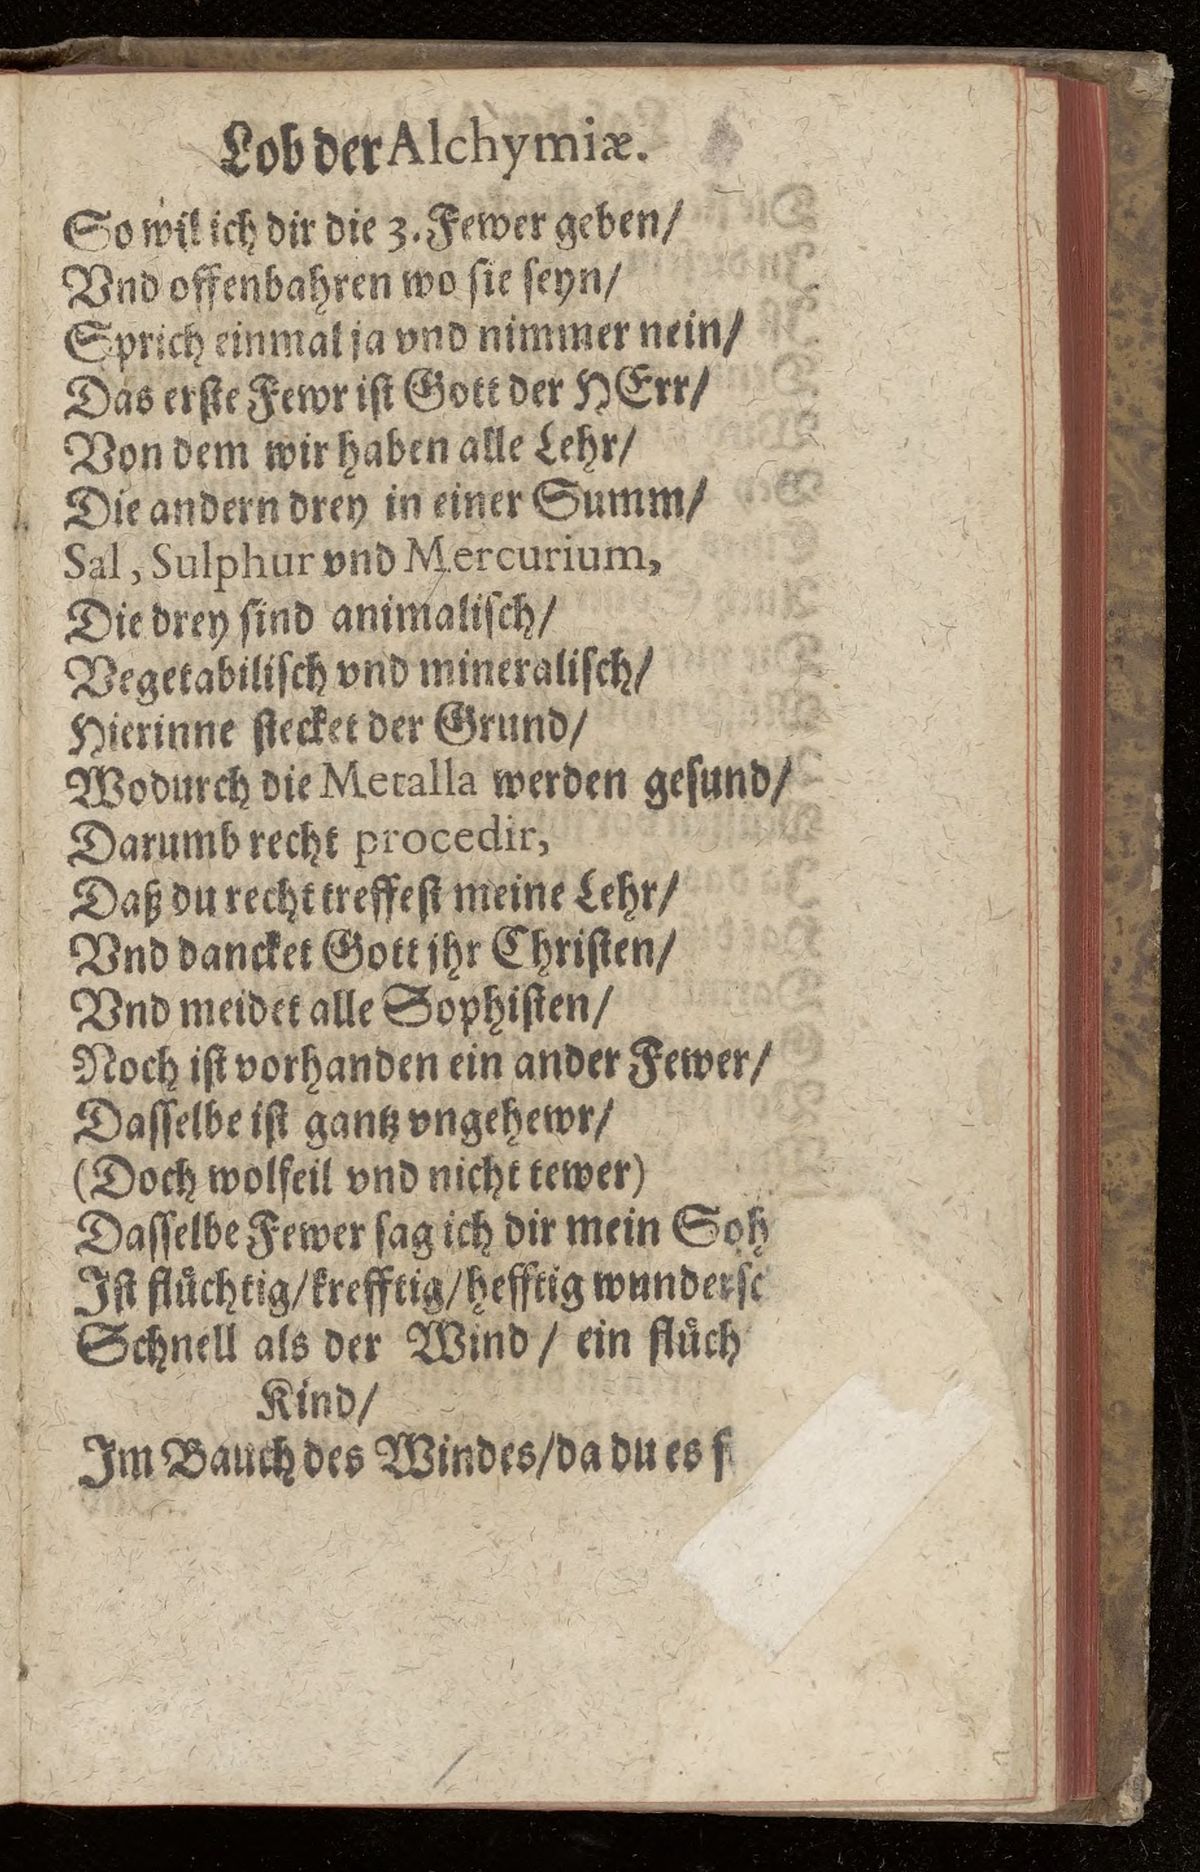 Lob der Alchymiæ.
So wil ich dir die 3. Fewer geben/
Vnd offenbahren wo ſie ſeyn/
Sprich einmal ja vnd nimmer nein/
Das erſte Fewr iſt Gott der HErr/
Von dem wir haben alle Lehr/
Die andern drey in einer Summ/
Sal, Sulphur vnd Mercurium,
Die drey ſind animaliſch/
Vegetabiliſch vnd mineraliſch/
Hierinne ſtecket der Grund/
Wodurch die Metalla werden geſund/
Darumb recht procedir,
Daß du recht treffeſt meine Lehr/
Vnd dancket Gott jhr Chriſten/
Vnd meidet alle Sophiſten/
Noch iſt vorhanden ein ander Fewer/
Daſſelbe iſt gantz vngehewr/
(Doch wolfeil vnd nicht tewer)
Daſſelbe Fewer ſag ich dir mein Soh
Iſt flüchtig/krefftig/hefftig wunderſc
Schnell als der Wind/ ein flüch
Kind/
Im Bauch des Windes/da du es f